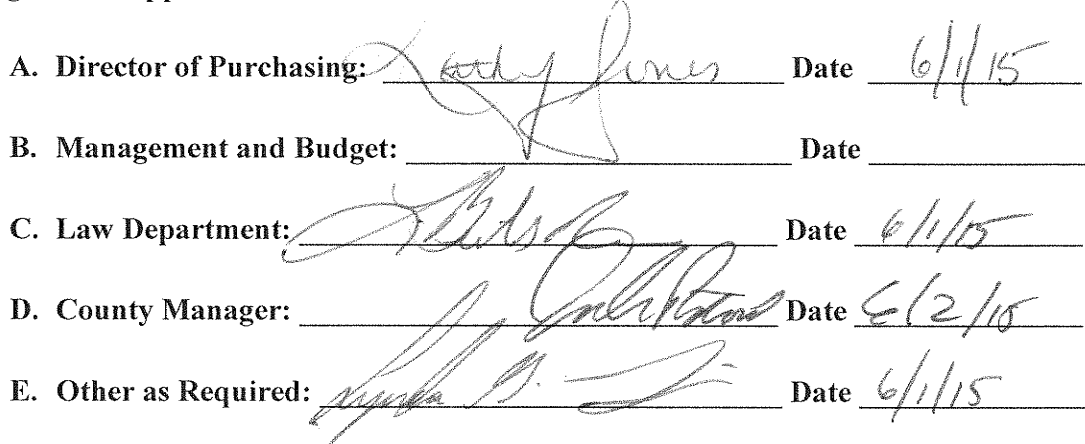 A. Director of Purchasing: Kathy Jones Date 6/1/15
B. Management and Budget: Date
C. Law Department: Date 6/1/15
D. County Manager: Date 6/2/15
E. Other as Required: Date 6/1/15